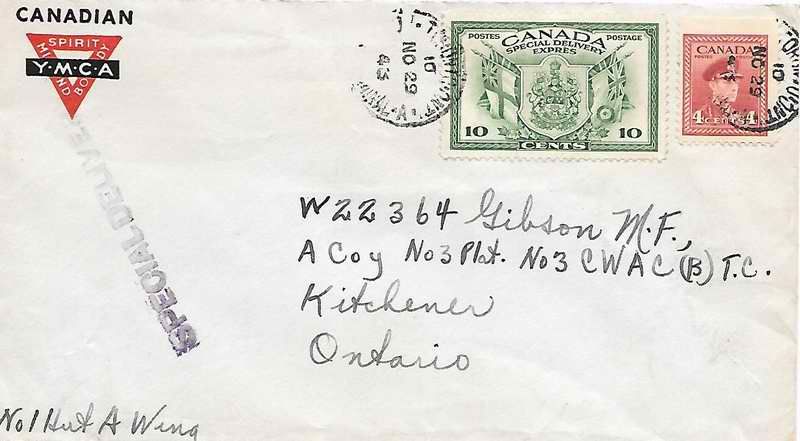 CANADIAN
SPIRIT
MIND
BODY
Y·M·C·A
10
NO 29
43
POSTES CANADA POSTAGE
SPECIAL DELIVERY
EXPRES
10 CENTS 10
CANADA
4 CENTS 4
10
NO 29
43
SPECIAL DELIVE
W22364 Gibson M.F.,
A Coy No 3 Plat. No 3 CWAC (B) T.C.
Kitchener
Ontario
No 1 Hut A Wing